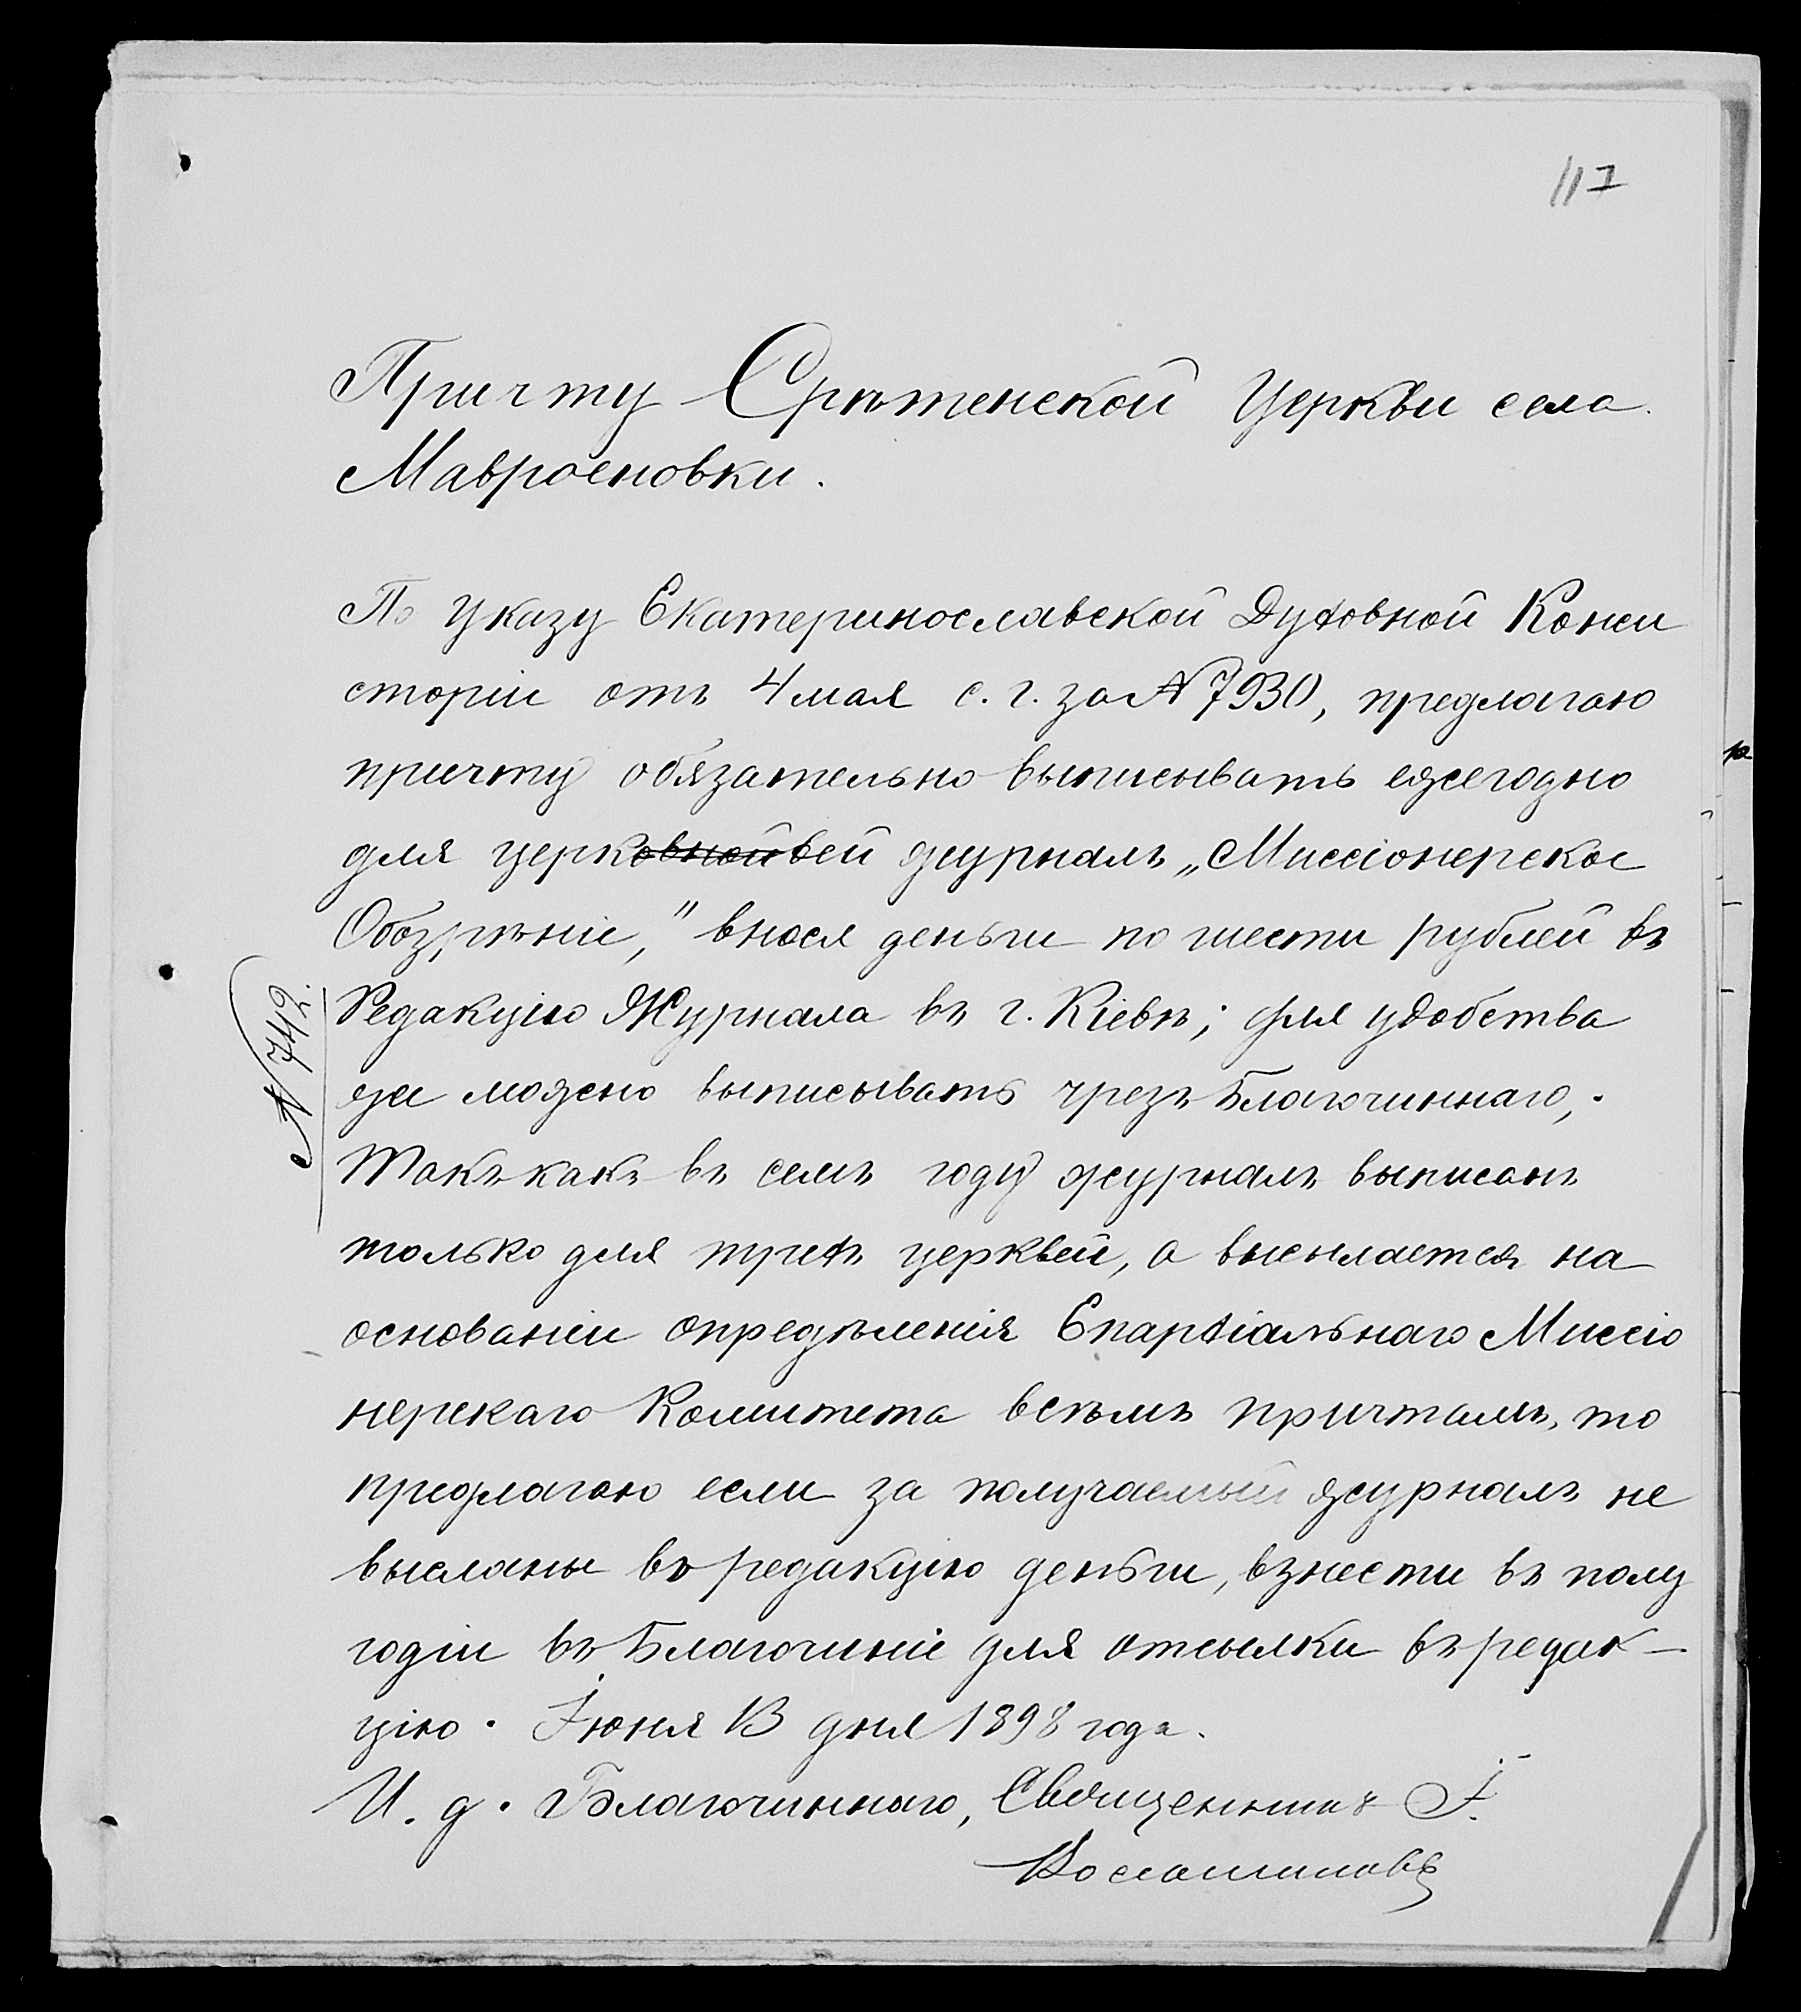 117
Причту Срѣтенской Церкви села
Мавроеновки.
По Указу Екатеринославской Духовной Конси
сторіи отъ 4 мая с. г. за № 7930, предлагаю
причту обязательно выписывать ежегодно
для церковнойвей журналъ „Миссіонерское
Обозрѣніе," внося деньги по шести рублей въ
Редакцію Журнала въ г. Кіевѣ; для удобства
же можно выписывать чрезъ Благочиннаго,.
Такъ какъ въ семъ году журналъ выписанъ
только для трехъ церквей, а высылается на
основаніи опредѣленія Епархіальнаго Миссіо
нерскаго Комитета всѣмъ причтамъ, то
предлагаю если за получаемый журналъ не
высланы въ редакцію деньги, взнести въ полу
годіи въ Благочиніе для отсылки въ редак-
цію. Іюня 13 дня 1898 года.
И. д. Благочиннаго, Священникъ І.
№ 742.